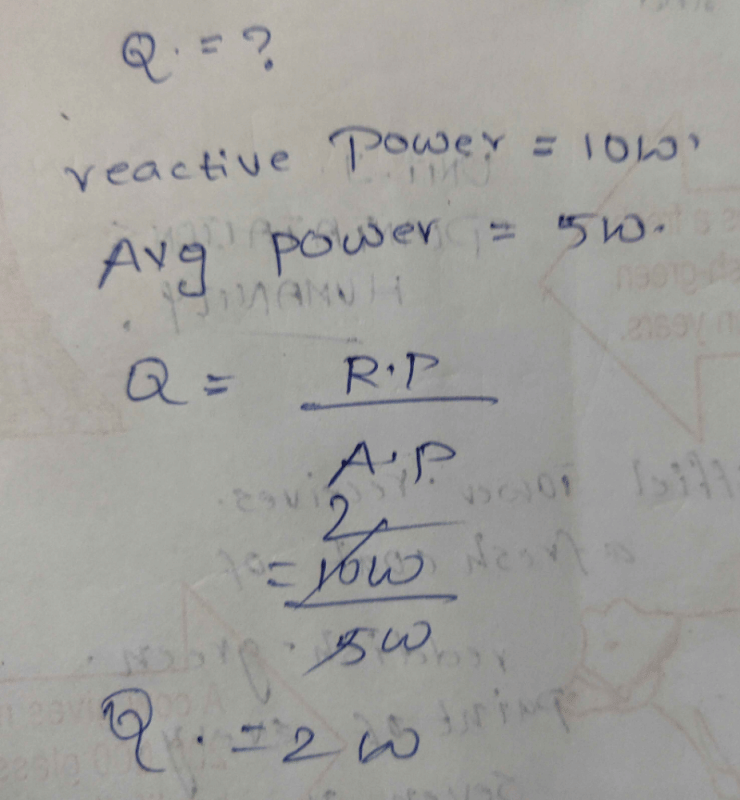 Q. = ?
reactive Power = 10W.
Avg power = 5W.
Q = R.P
A.P
2
= 10W
5W
Q. = 2 W